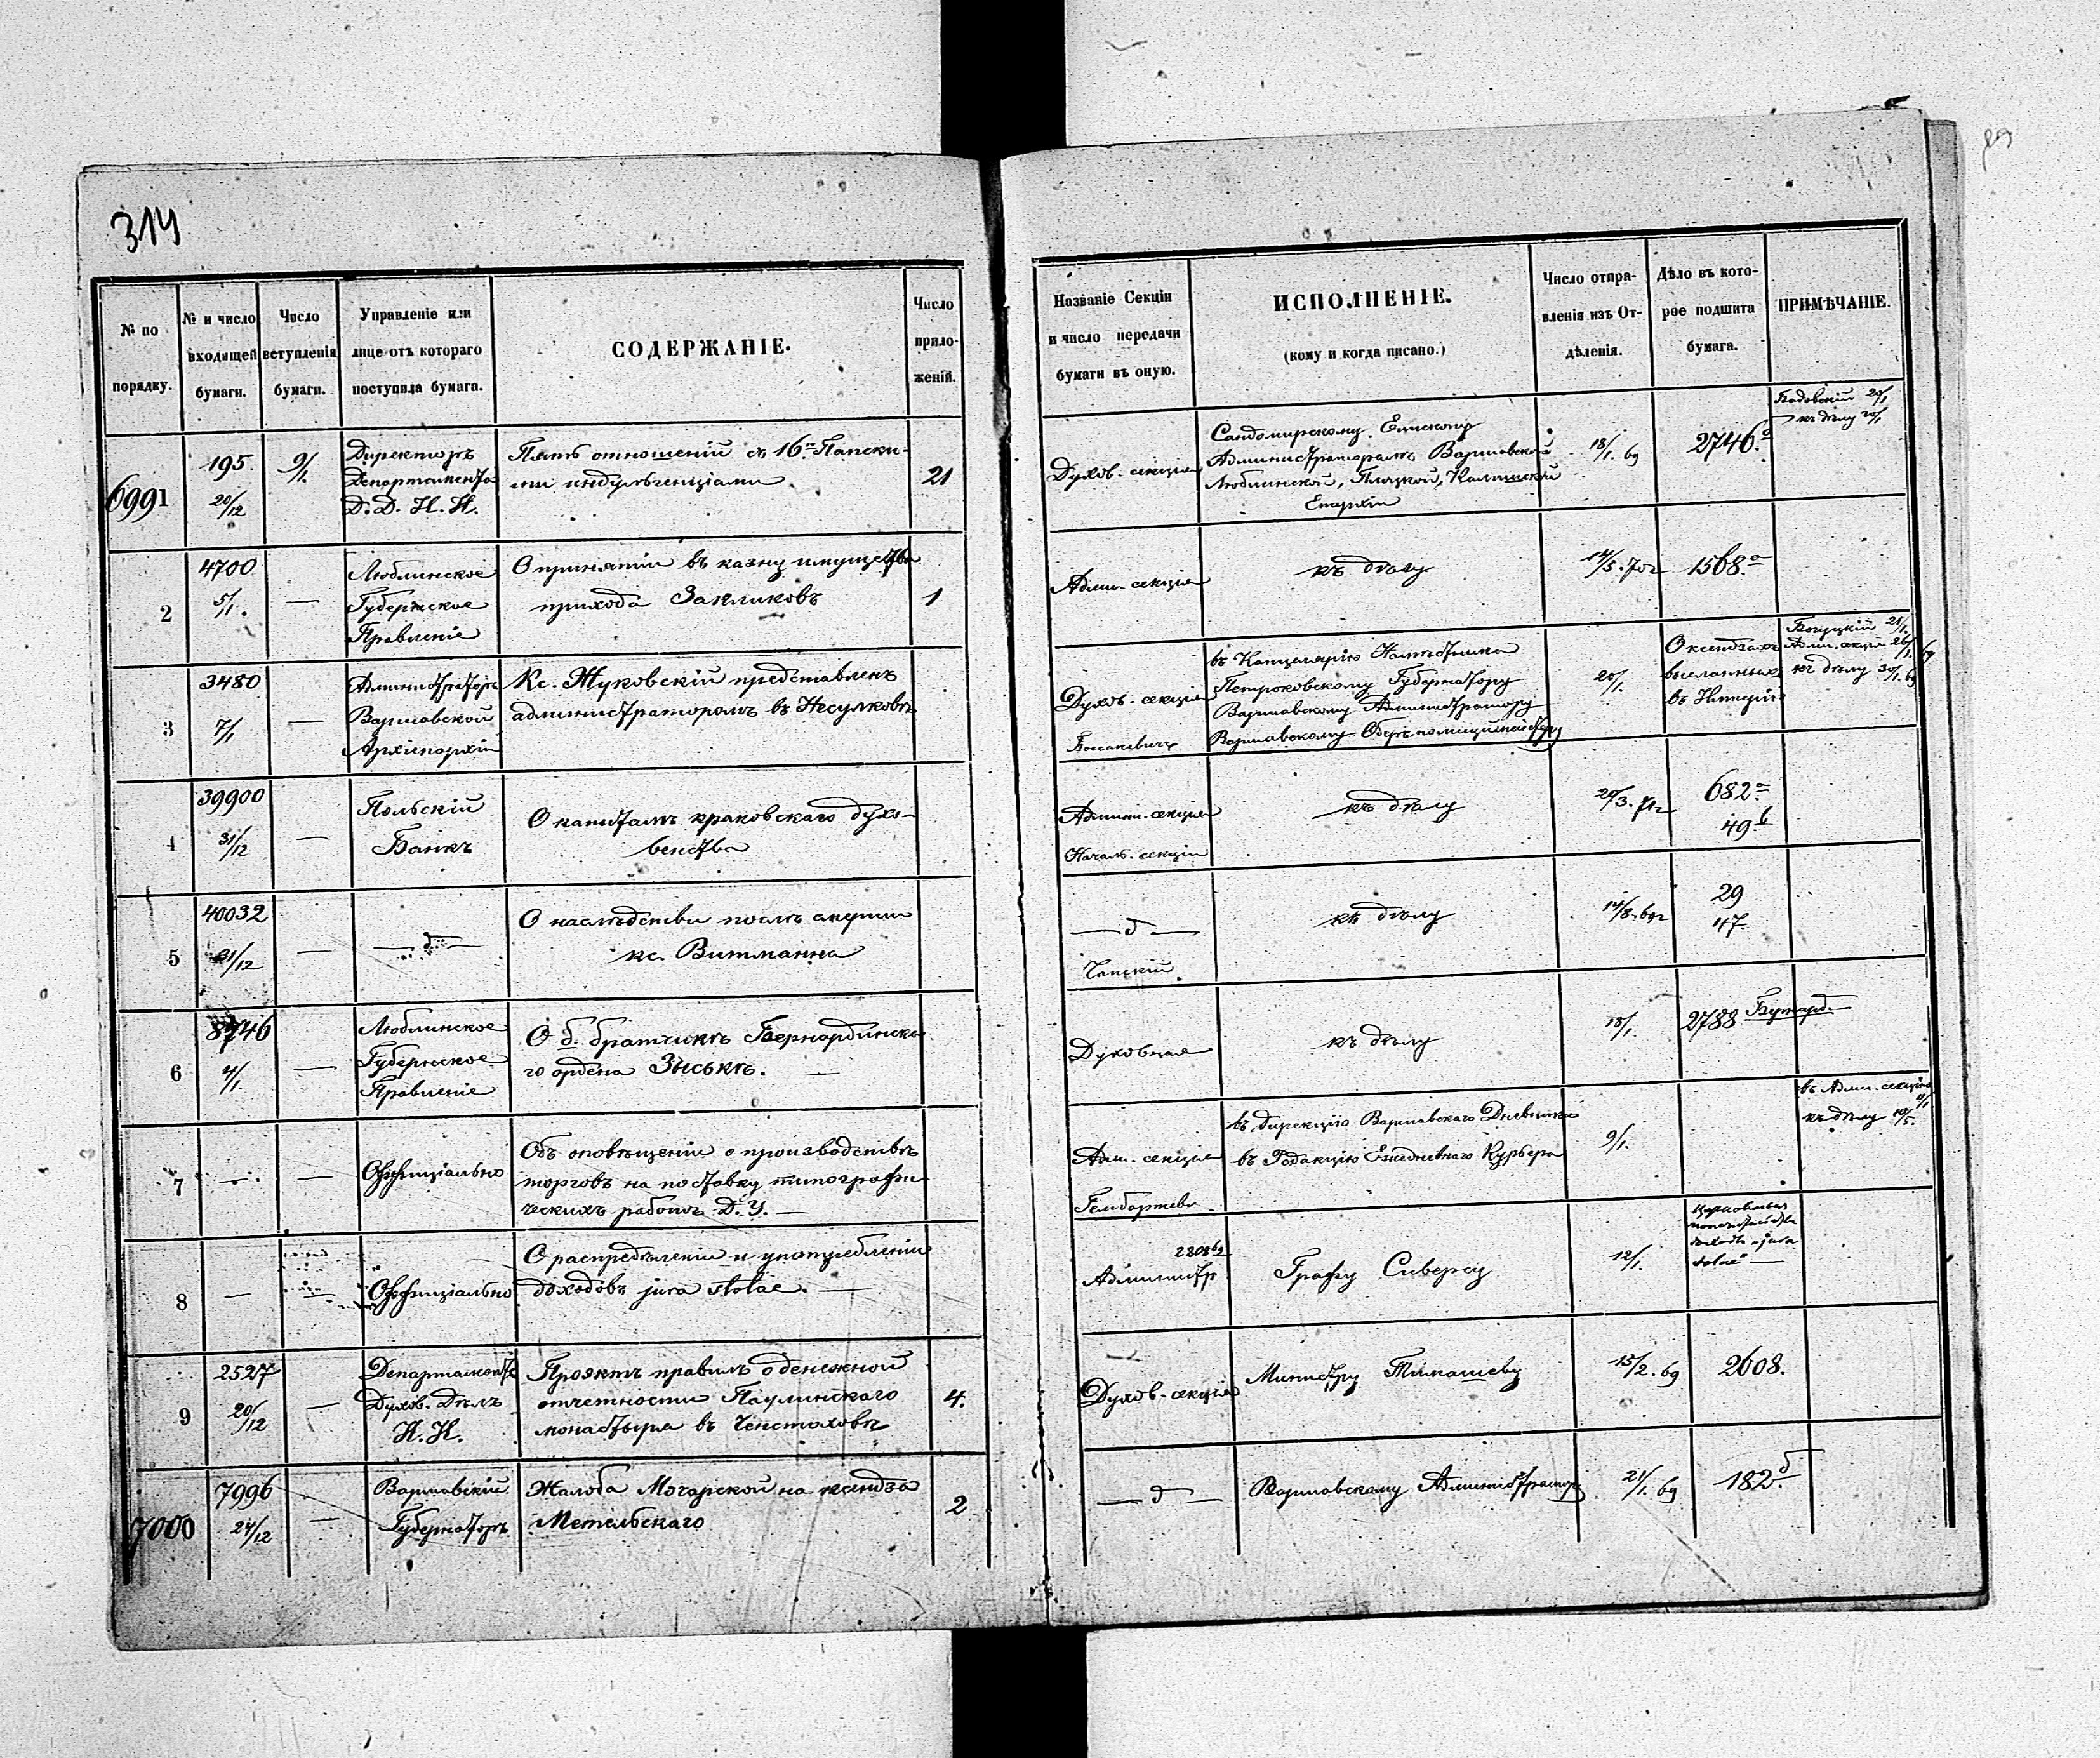 314
№ по порядку.
№ и число входящей бумаги.
Число вступленія бумаги.
Управленіе или лице отъ котораго поступила бумага.
СОДЕРЖАНІЕ.
Число приложеній.
Названіе Секціи и число передачи бумаги въ оную.
ИСПОЛНЕНІЕ.
(кому и когда писано.)
Число отправленія изъ Отдѣленія.
Дѣло въ которое подшита бумага.
ПРИМѢЧАНІЕ.
6991
195.
20/12
9/1.
Директоръ
Департамента
Д. Д. И. И.
Пять отношеній съ 16ю Папски-
ми индульгенціами
21
Духов. секція
Сандомирскому Епископу
Администраторамъ Варшавской
Люблинской, Плоцкой, Калишской
Епархіи
18/1. 69
2746.а
20/1
къ дѣлу 20/1
2
4700
5/1.
—
Люблинское
Губернское
Правленіе
О принятіи въ казну имущества
прихода Закликовъ
1
Адми. секція
къ дѣлу
14/5. 70г
1568.а
3
3480
7/1
—
Администраторъ
Варшавской
Архіепархіи
Кс. Жуковскій представленъ
администраторомъ въ Несулковъ
Духов. секція
въ Канцелярію Намѣстника
Петроковскому Губернатору
Варшавскому Администратору
Варшавскому Оберъ-полицмейстеру
20/1.
О ксендзахъ
высланныхъ
въ Имперію
Богуцкій 21/1.
Адми. секція 26/1. 69
къ дѣлу 30/1. 69
4
39900
31/12
—
Польскій
Банкъ
О капиталѣ краковскаго духо-
венства
Админ. секція
Начал. секціи
къ дѣлу
20/3. 71г
682.а
49.б
5
40032
31/12
—
— д —
О наслѣдстви послѣ смерти
кс. Витманна
— д —
Чапскій
къ дѣлу
14/8. 69г
29
47.
6
8746
4/1.
—
Люблинское
Губернское
Правленіе
О б. братчикѣ Бернардинска-
го ордена Зыськѣ. —
Духовная
къ дѣлу
18/1.
2788
7
—
—
Оффиціально
Объ оповѣщеніи о производствѣ
торговъ на поставку типографи-
ческихъ работъ Д. У. —
Адм. секція
въ дирекцію Варшавскаго Дневника
въ Редакцію Ежедневнаго Курьера
9/1.
въ Адми. секцію 11/1
къ дѣлу 10/5.
8
—
—
Оффиціально
О распредѣленіи и употребленіи
доходовъ jura stolae. —
Администр
Графу Сиверсу
12/1.
9
2527
20/12
—
Департаментъ
Духов. Дѣлъ
И. И.
Проэктъ правилъ о денежной
отчетности Паулинскаго
монастыря въ Ченстоховѣ
4.
Духов. секція
Министру Тимашеву
15/2. 69
2608.
7000
7996
24/12
—
Варшавскій
Губернаторъ
Жалоба Мочарской на ксендза
Метельскаго
2
— д —
Варшавскому Администратору
21/1. 69
182.б